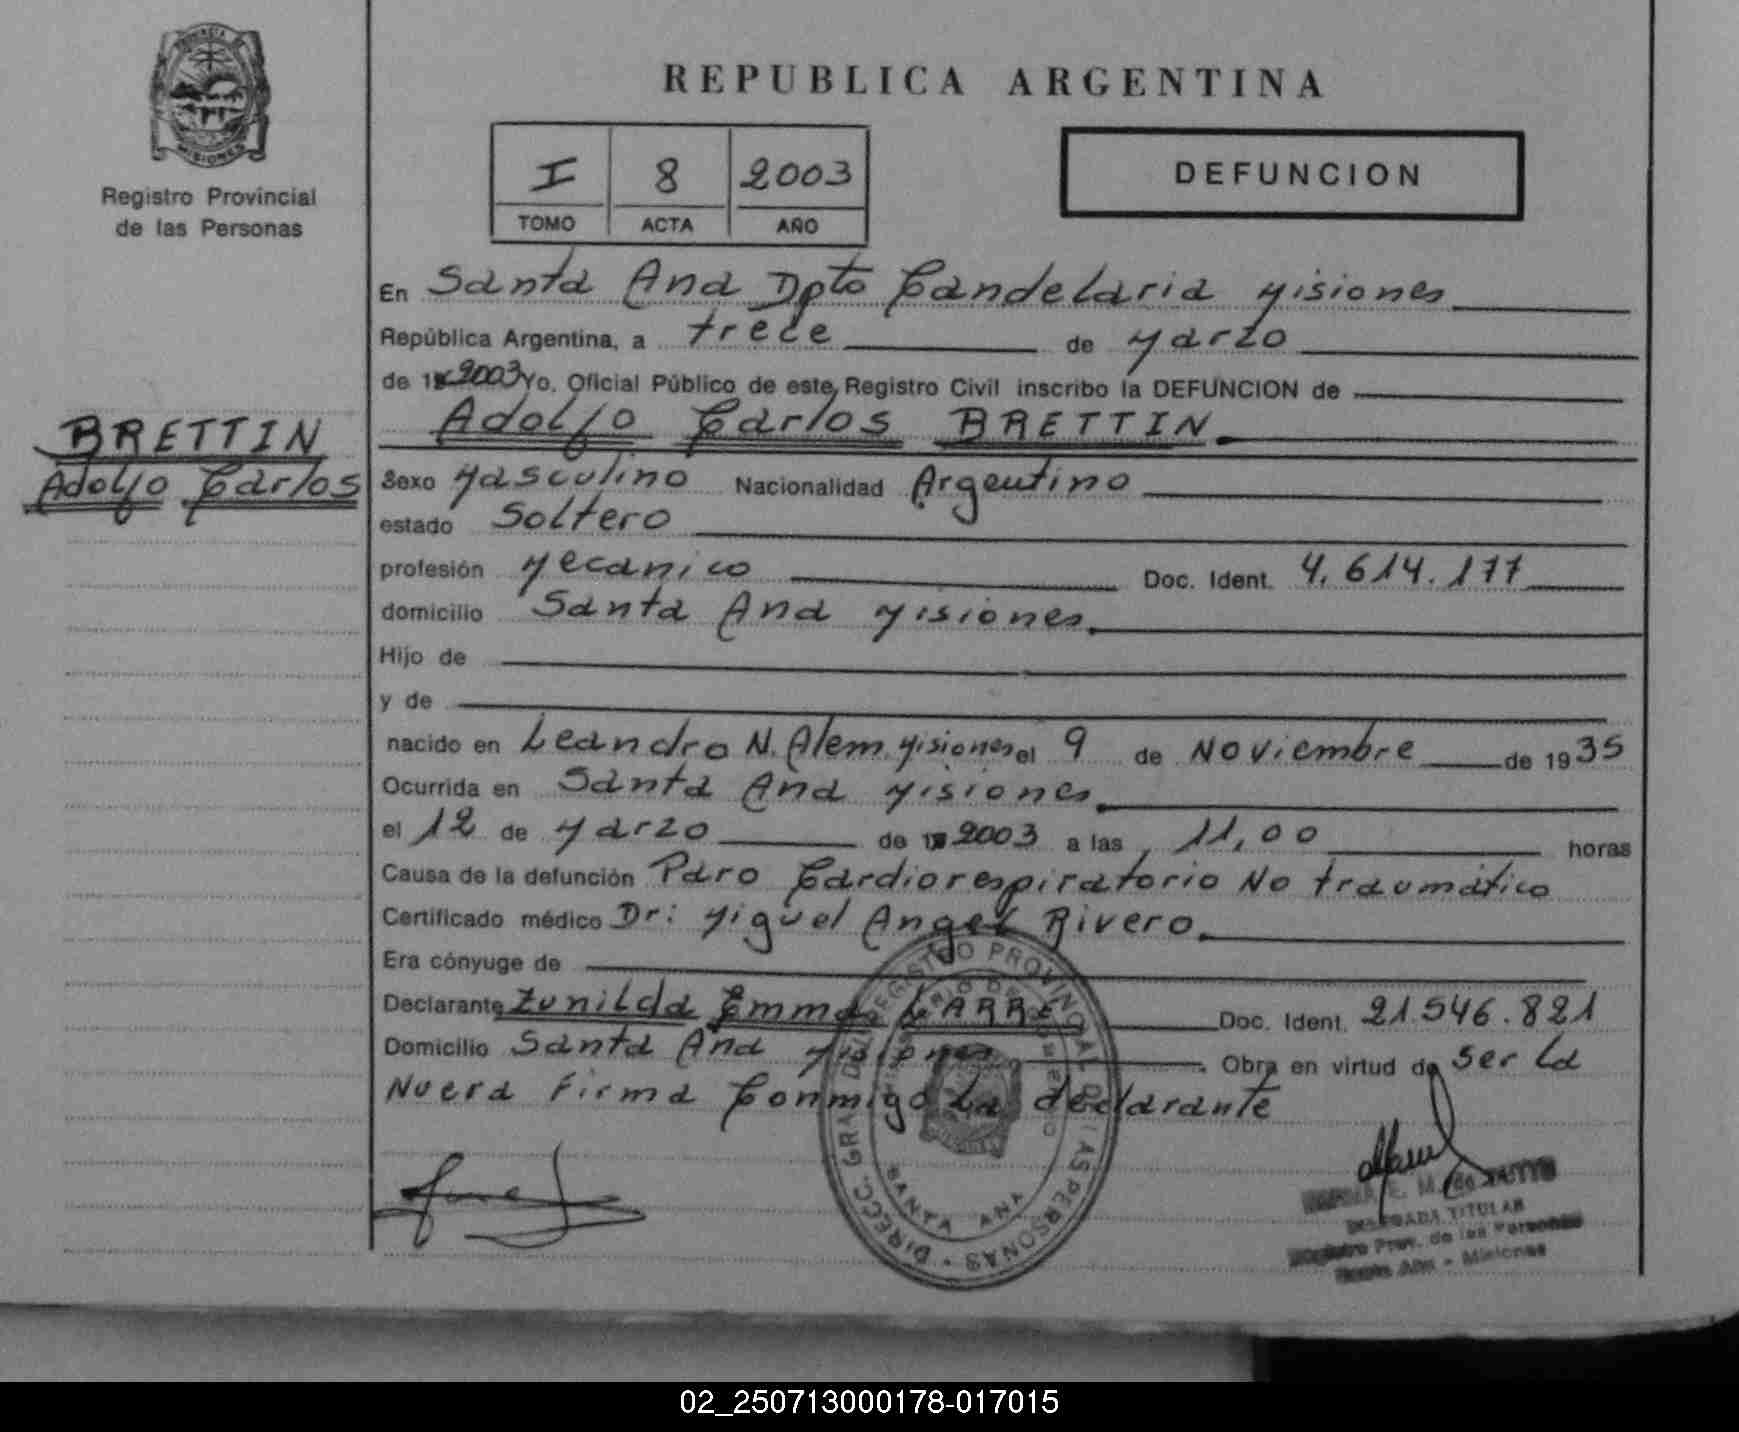 PROVINCIA DE
MISIONES
Registro Provincial
de las Personas
REPUBLICA ARGENTINA
I 8 2003
TOMO ACTA AÑO
DEFUNCION
En Santa Ana Dpto Candelaria Misiones
República Argentina, a trece de Marzo
de 2003 Yo, Oficial Público de este Registro Civil inscribo la DEFUNCION de
Adolfo Carlos BRETTIN
BRETTIN
Adolfo Carlos
Sexo Masculino Nacionalidad Argentino
estado Soltero
profesión Mecanico Doc. Ident. 4.614.177
domicilio Santa Ana Misiones
Hijo de
y de
nacido en Leandro N. Alem Misiones el 9 de Noviembre de 1935
Ocurrida en Santa Ana Misiones
el 12 de Marzo de 2003 a las 11,00 horas
Causa de la defunción Paro Cardiorespiratorio No traumático
Certificado médico Dr: Miguel Angel Rivero
Era cónyuge de
Declarante Zunilda Emma LARRE Doc. Ident. 21.546.821
Domicilio Santa Ana Misiones Obra en virtud de Ser la
Nuera Firma Conmigo La declarante
DIRECC. GRAL. DEL REGISTRO PROVINCIAL DE LAS PERSONAS
SANTA ANA
E. M. de
DELEGADA TITULAR
Registro Prov. de las Personas
Santa Ana - Misiones
02_250713000178-017015